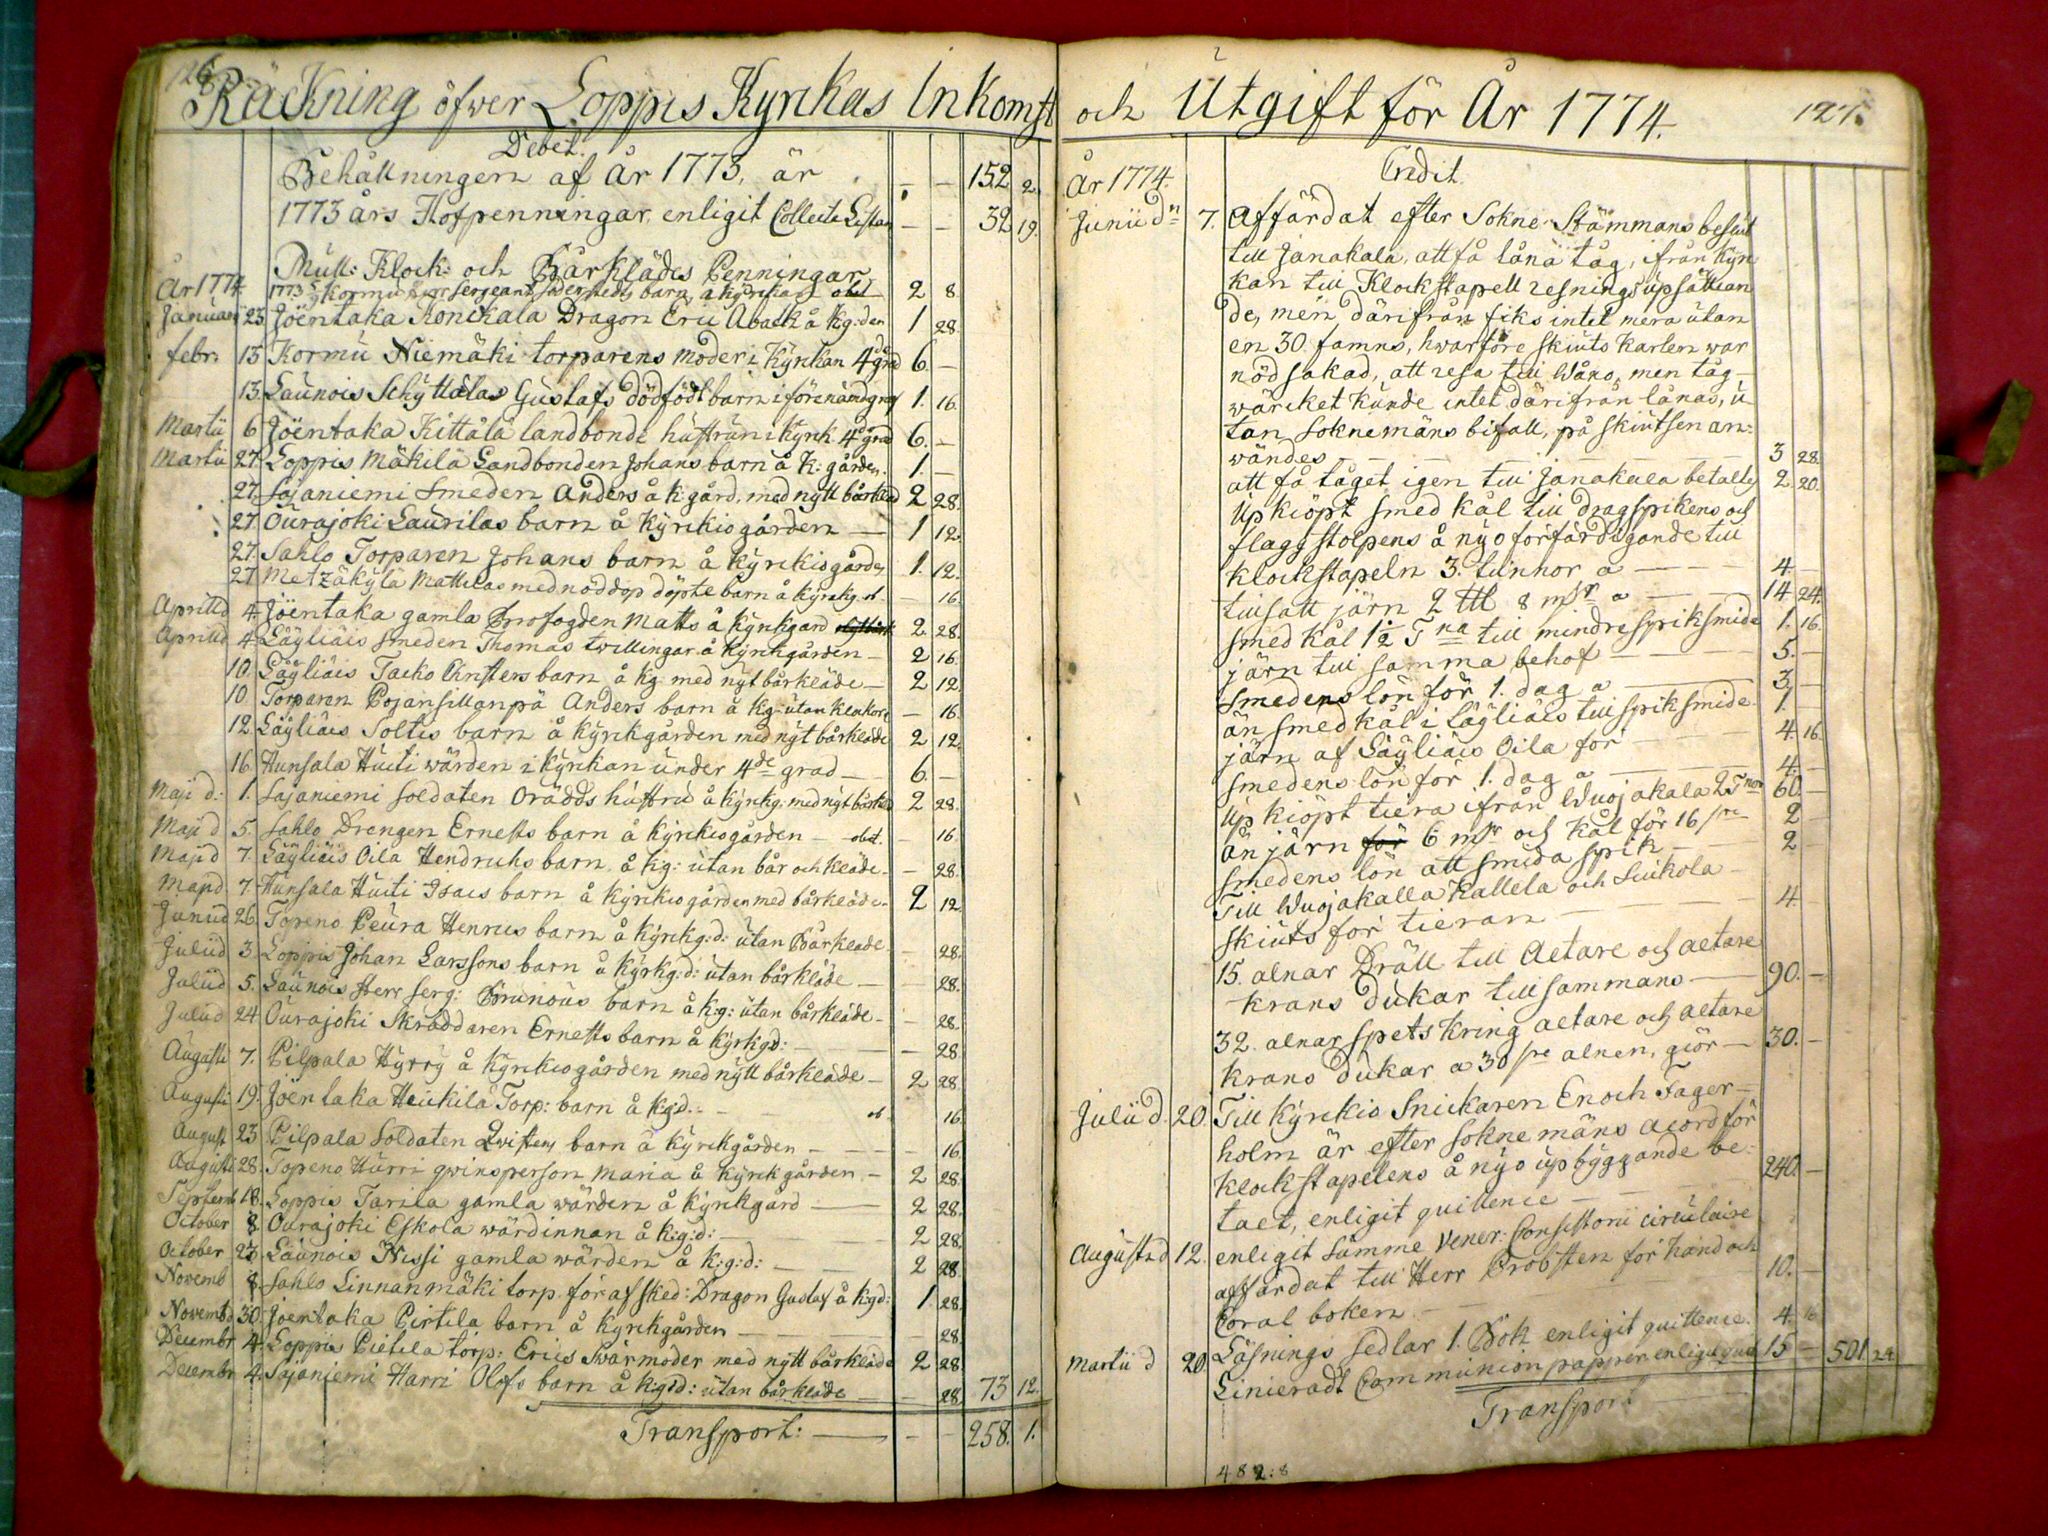 126.
Räckning öfwer Loppis Kyrkas Inkomst
Debet.
Behållningen af År 1773, är 152 2.
1773 års Hofpenningar enligit Collecte Listan 32 19.
Mull: Klock: och Bårklädes Penningar
År 1774 1773 Kormu barn å kyrkiog 2 8.
Januarii 23 Jöentaka Konikala Dragon Eric Aback å kg:den 1 28.
febr. 15 Kormu Niemäki torparens moder i Kyrkan 4de grad 6. —
13. Launois Schyttälas Gustafs dödfödt barn i förenämd graf 1. 16.
Martii 6 Jöentaka Kittälä landbonde hustrun i Kyrk. 4de grad 6. —
Martii 27. Loppis Mäkilä Landbonden Johans barn å K: gården. 1. —
27. Sajaniemi Smeden Anders å k: gård, med nytt bårkläd 2 28.
27. Ourajoki Laurilas barn å Kyrkiogården — 1 12.
27. Sahlo Torparen Johans barn å Kyrkiogården 1. 12.
27 Metzäkylä Mattilas med nöddop döpte barn å Kyrakg. — 16.
Aprill d 4. Jöentaka gamla Matts å Kyrkgård 2. 28.
Aprill d 4 Läyliäis smeden Thomas twillingar å Kyrkgården — 2 16.
10. Läyliäis Jacko Christers barn å kg. med nyt bårkläde — 2 12.
10 Torparen Pojansillanpä Anders barn å kg: utan — 16.
12. Läyliäis Soltis barn å Kyrkgården med nyt bårkläde 2 12.
16. Hunsala Huiti wärden i Kyrkan under 4de grad — 6. —
Maji d: 1. Sajaniemi soldaten Orädds hustru å kyrkg: med nyt bårkläd 2 28.
Maji d 5. Sahlo Drengen Ernests barn å Kyrkiogården — 16.
Maji d 7. Läyliäis Oila Hendrichs barn å kg: utan bår och kläde. — 28.
Maji d 7. Hunsala Huiti Isacs barn å Kyrkiogården med bårkläde. 2 12.
Junii d 26. Topeno Peura Henrics barn å Kyrkg:d: utan Bårkläde — 28.
Julii d 3. Loppis Johan Larssons barn å Kyrkg:d: utan bårkläde — 28.
Julii d 5. Launois Herr Serg: Brunous barn å k:g: utan bårkläde — 28.
Julii d 24 Ourajoki Skräddaren Ernests barn å Kyrkgd: — 28.
Augusti 7. Pilpala Hyrry å Kyrkiogården med nytt bårkläde — 2 28.
Augusti 19. Jöentaka Heikilä Torp: barn å kgd: — 16.
August 23 Pilpala Soldaten Qwistens barn å Kyrkgården — 16.
Augusti 28. Topeno Hurri qwinsperson Maria å Kyrkgården — 2 28.
Septemb 18. Loppis Tarila gamla wärden å Kyrkgård — 2 28.
October 8. Ourajoki Eskola wärdinnan å k:g:d: 2 28.
October 23. Launois Nissi gamla wärden å k:g:d: — 2 28.
Novemb 8. Sahlo Linnanmäki torp. för afsked: Dragon Gustaf å kgd: 1. 28.
Novemb d 30. Jöentaka Pirtilä barn å Kyrkgården — 28.
Decembr 4. Loppis Pietila torp: Erics Swärmoder med nytt bårkläde 2 28.
Decembr 4. Sajaniemi Harri Olofs barn å kgd: utan bårkläde — 28. 73 12.
Transport: — 258. 1.
och Utgift för År 1774. 127.
Credit.
År 1774.
Junii dn 7. Affärdat efter Sokne Stämmans beslut
till Janakala, att få låna tåg, ifrån kyr
kan till Klockstapell resnings upsättian
de, men därifrån fiks intet mera utan
en 30. famns, hwarföre skiuts karlen war
nödsakad, att resa till Wåno, men tåg-
wärcket kunde intet därifrån lånas, u
tan Soknemäns bifall, på skiutsen an-
wändes — 3 28.
att få tåget igen till Janakala betaltes 2 20.
Up kiöpt smed kål till dragspikens och
flagg stolpens å nyo förfärdigande till
klockstapeln 3. tunnor a — 4 —
tillsatt järn 2 ltt 8 mkr a — 14 24.
smed kål 1½ Tna till mindre spiksmide 1. 16.
järn till samma behof — 5. —
Smedens lön för 1. dag a — 3 —
än smed kål i Läyliäis till spiksmide. 1. —
järn af Läyliäis Oila för — 4. 16.
smedens lön för 1. dag a — 4. —
Up kiöpt tiera ifrån Wuojakala 2 Tnor 60. —
än järn 6 mkr och kål för 16 2 —
smedens lön att smida spik — 2 —
Till Wuojakalla Kallela och Suikola
skiuts för tieran — 4. —
15. alnar Dräll till Altare och altare
krans dukar tillsammans — 90. —
32. alnar spets kring altare och altare
krans dukar a 30 alnen, giör — 30. —
Julii d. 20. Till Kyrkio Snickaren Enoch Fager-
holm är efter sokne mäns acord för
Klockstapelens å nyo upbyggande be-
talt, enligit quittence — 240. —
August d 12. enligit Samme Vener: Consistorii circulaire
affärdat till Herr Probsten för hand och
Coral boken — 10. —
Läsnings sedlar 1. Bok enligit quittence. 4. 16
Martii d 20. Linieradt Communion papper enligit quit 15 — 501. 24
Transport
482:8